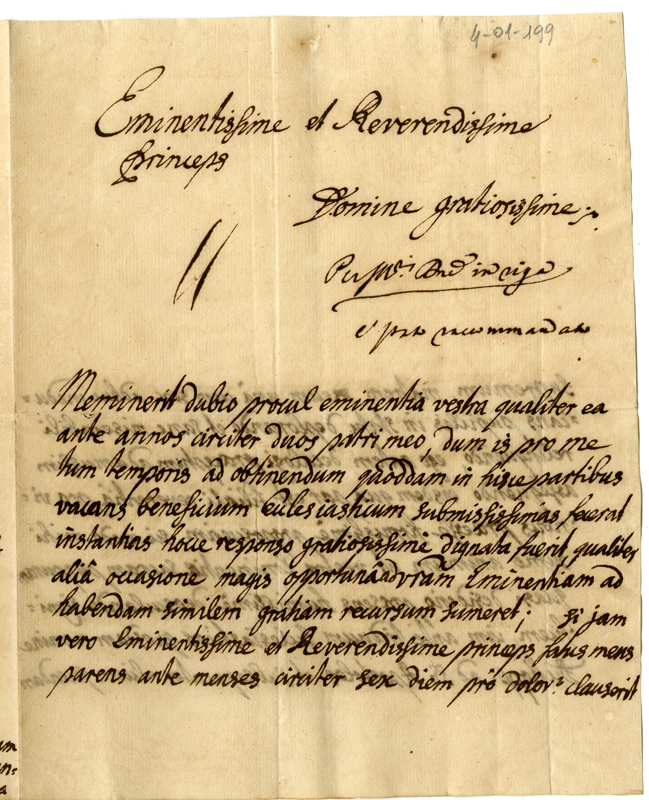 4-01-199
Eminentissime et Reverendissime
Princeps
Domine gratiosissime
è stato raccommandato
Meminerit dubio procul eminentia vestra qualiter ea
ante annos circiter duos patri meo, dum is pro me
tum temporis ad obtinendum quoddam in hisce partibus
vacans beneficium Ecclesiasticum submississimas fecerat
instantias hocce responso gratiosissimè dignata fuerit, qualiter
aliâ occasione magis opportunâ ad vram Eminentiam ad
habendam similem gratiam recursum sumeret; si jam
vero Eminentissime et Reverendissime princeps fatus meus
parens ante menses circiter sex diem prô dolor! clauserit
um
en:
a